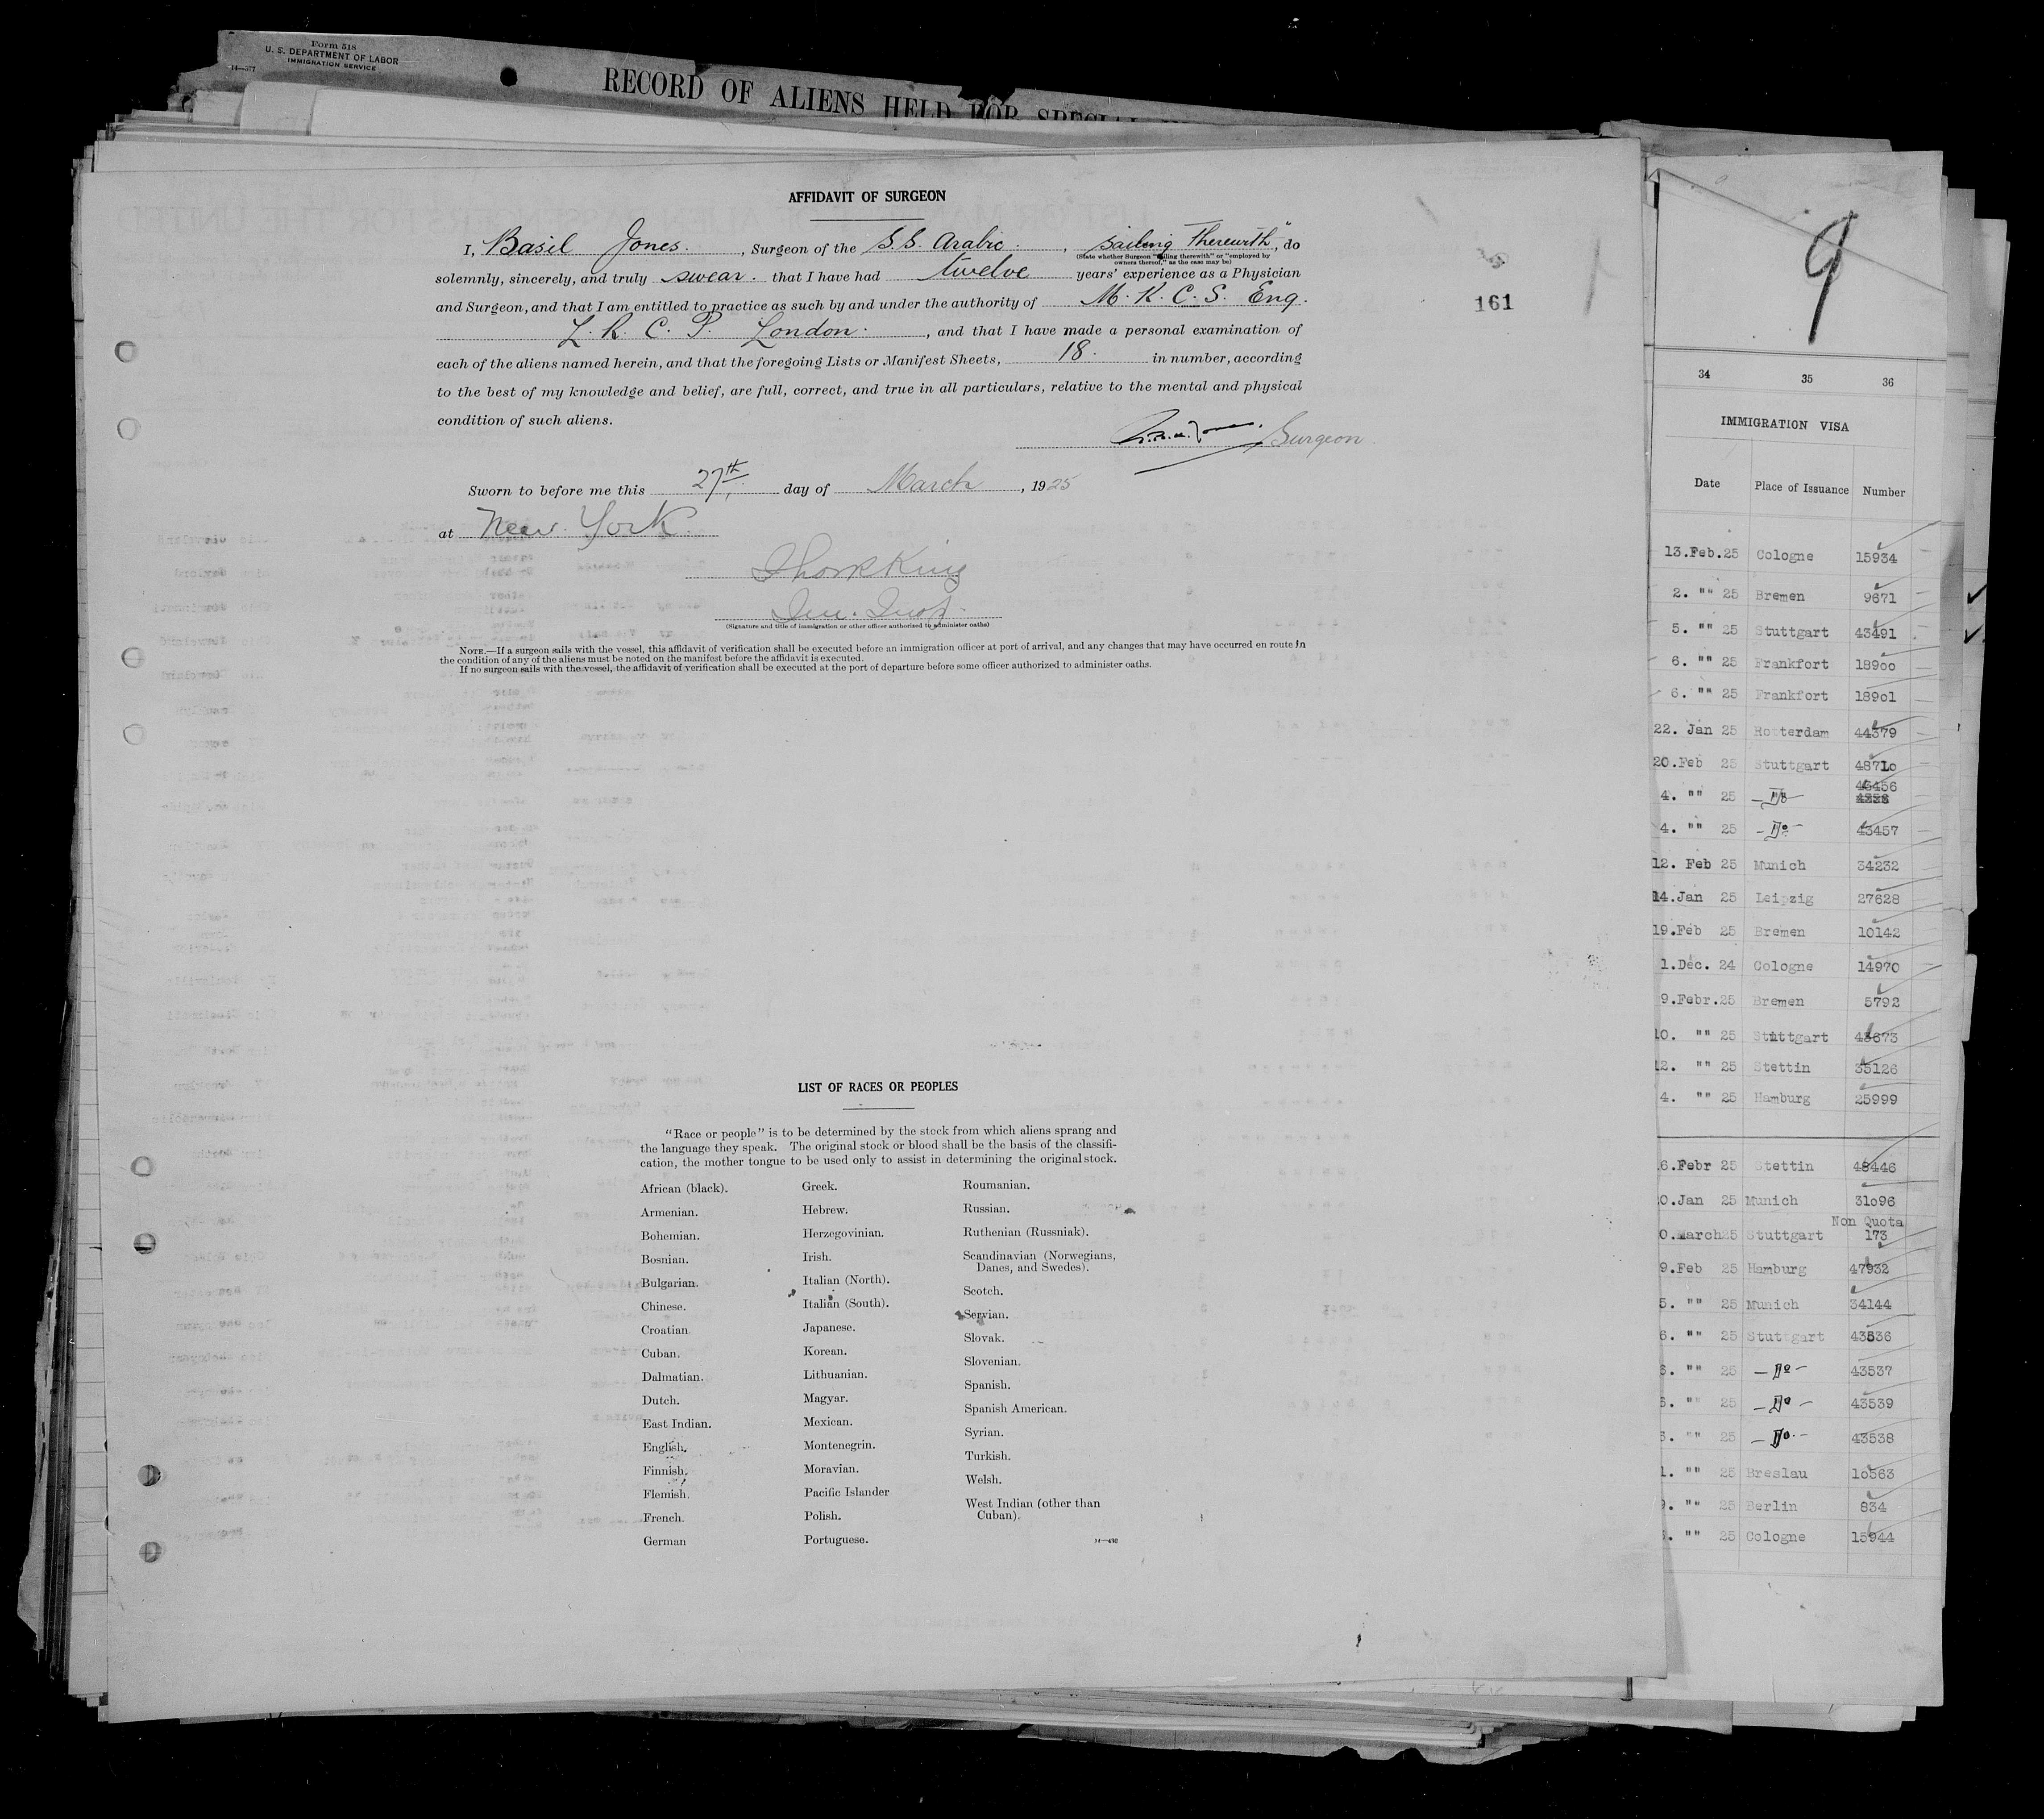 Form 518
U. S. DEPARTMENT OF LABOR
IMMIGRATION SERVICE
14—577
RECORD OF ALIENS HELD FOR SPECIAL
AFFIDAVIT OF SURGEON
I, Basil Jones. , Surgeon of the S.S. Arabic. , sailing Therewith", do
(State whether Surgeon "sailing therewith" or "employed by
owners thereof," as the case may be)
solemnly, sincerely, and truly swear. that I have had twelve years' experience as a Physician
and Surgeon, and that I am entitled to practice as such by and under the authority of M. R. C. S. Eng.
L. R. C. P. London. , and that I have made a personal examination of
each of the aliens named herein, and that the foregoing Lists or Manifest Sheets, 18. in number, according
to the best of my knowledge and belief, are full, correct, and true in all particulars, relative to the mental and physical
condition of such aliens.
Surgeon
Sworn to before me this 27th day of March , 1925
at New York.
Imm. Insp.
(Signature and title of immigration or other officer authorized to administer oaths)
NOTE.—If a surgeon sails with the vessel, this affidavit of verification shall be executed before an immigration officer at port of arrival, and any changes that may have occurred en route in
the condition of any of the aliens must be noted on the manifest before the affidavit is executed.
If no surgeon sails with the vessel, the affidavit of verification shall be executed at the port of departure before some officer authorized to administer oaths.
161
LIST OF RACES OR PEOPLES
"Race or people" is to be determined by the stock from which aliens sprang and
the language they speak. The original stock or blood shall be the basis of the classifi-
cation, the mother tongue to be used only to assist in determining the original stock.
African (black).
Armenian.
Bohemian.
Bosnian.
Bulgarian.
Chinese.
Croatian
Cuban.
Dalmatian.
Dutch.
East Indian.
English.
Finnish.
Flemish.
French.
German
Greek.
Hebrew.
Herzegovinian.
Irish.
Italian (North).
Italian (South).
Japanese.
Korean.
Lithuanian.
Magyar.
Mexican.
Montenegrin.
Moravian.
Pacific Islander
Polish.
Portuguese.
Roumanian.
Russian.
Ruthenian (Russniak).
Scandinavian (Norwegians,
Danes, and Swedes).
Scotch.
Servian.
Slovak.
Slovenian.
Spanish.
Spanish American.
Syrian.
Turkish.
Welsh.
West Indian (other than
Cuban).
9
34 35 36
IMMIGRATION VISA
Date Place of Issuance Number
13.Feb.25 Cologne 15934
2. "" 25 Bremen 9671
5. "" 25 Stuttgart 43491
6. "" 25 Frankfort 18900
6. "" 25 Frankfort 18901
22. Jan 25 Rotterdam 44379
20.Feb 25 Stuttgart 48710
4. "" 25 - Do - 43456
4. "" 25 - Do - 43457
12. Feb 25 Munich 34232
14.Jan 25 Leipzig 27628
19.Feb 25 Bremen 10142
1.Dec. 24 Cologne 14970
9.Febr.25 Bremen 5792
10. "" 25 Stuttgart 43673
12. "" 25 Stettin 35126
4. "" 25 Hamburg 25999
6.Febr 25 Stettin 48446
0.Jan 25 Munich 31096
Non Quota
0.March25 Stuttgart 173
9.Feb 25 Hamburg 47932
5. "" 25 Munich 34144
6. "" 25 Stuttgart 43536
6. "" 25 - Do - 43537
6. "" 25 - Do - 43539
6. "" 25 - Do - 43538
1. "" 25 Breslau 10563
9. "" 25 Berlin 834
"" 25 Cologne 15944